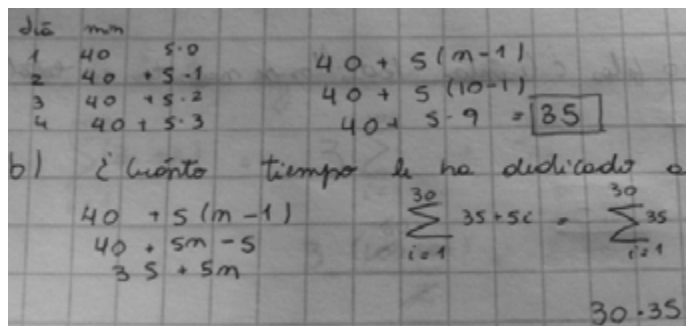 día min
1 40 5·0
2 40 + 5·1
3 40 + 5·2
4 40 + 5·3
40 + 5(n-1)
40 + 5(10-1)
40 + 5·9 = 85
b) ¿Cuánto tiempo le ha dedicado a
40 + 5(n-1)
40 + 5n - 5
35 + 5n
30 30
∑ 35 + 5i = ∑ 35
i=1 i=1
30·35